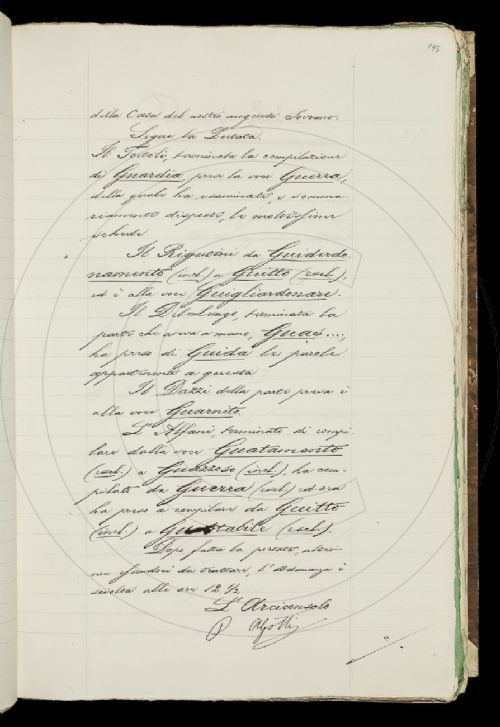 della Casa del nostro augusto Sovrano.
Segue la Portata.
Il Tortoli, terminata la compilazione
di Guardia, prese la voce Guerra,
della quale ha esaminate, e somma-
riamente disposte, le moltissime
schede.
Il Rigutini da Guiderdo-
namento (incl.) a Guitto (escl.),
ed è alla voce Guigliardonare.
Il Del Lungo, terminata la
parte che aveva a mano, Guas...,
ha preso di Guida le parole
appartenenti a questa
Il Dazzi della parte presa è
alla voce Guarnito.
L'Alfani, terminato di compi-
lare dalla voce Guatamento
(escl.) a (incl.), ha com-
pilato da Guerra (escl.) ed ora
ha preso a compilare da Guitto
(incl.) a (escl.).
Dopo fatta la portata, altro
non essendoci da trattare, l'adunanza è
sciolta alle ore 12 ½
L'Arciconsolo